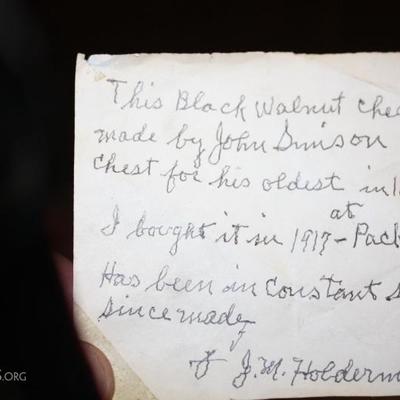 This Black Walnut che
made by John Simson
chest for his oldest in 1
at
I bought it in 1917 - Pack
Has been in constant s
since made
J.M. Holderm
S.ORG